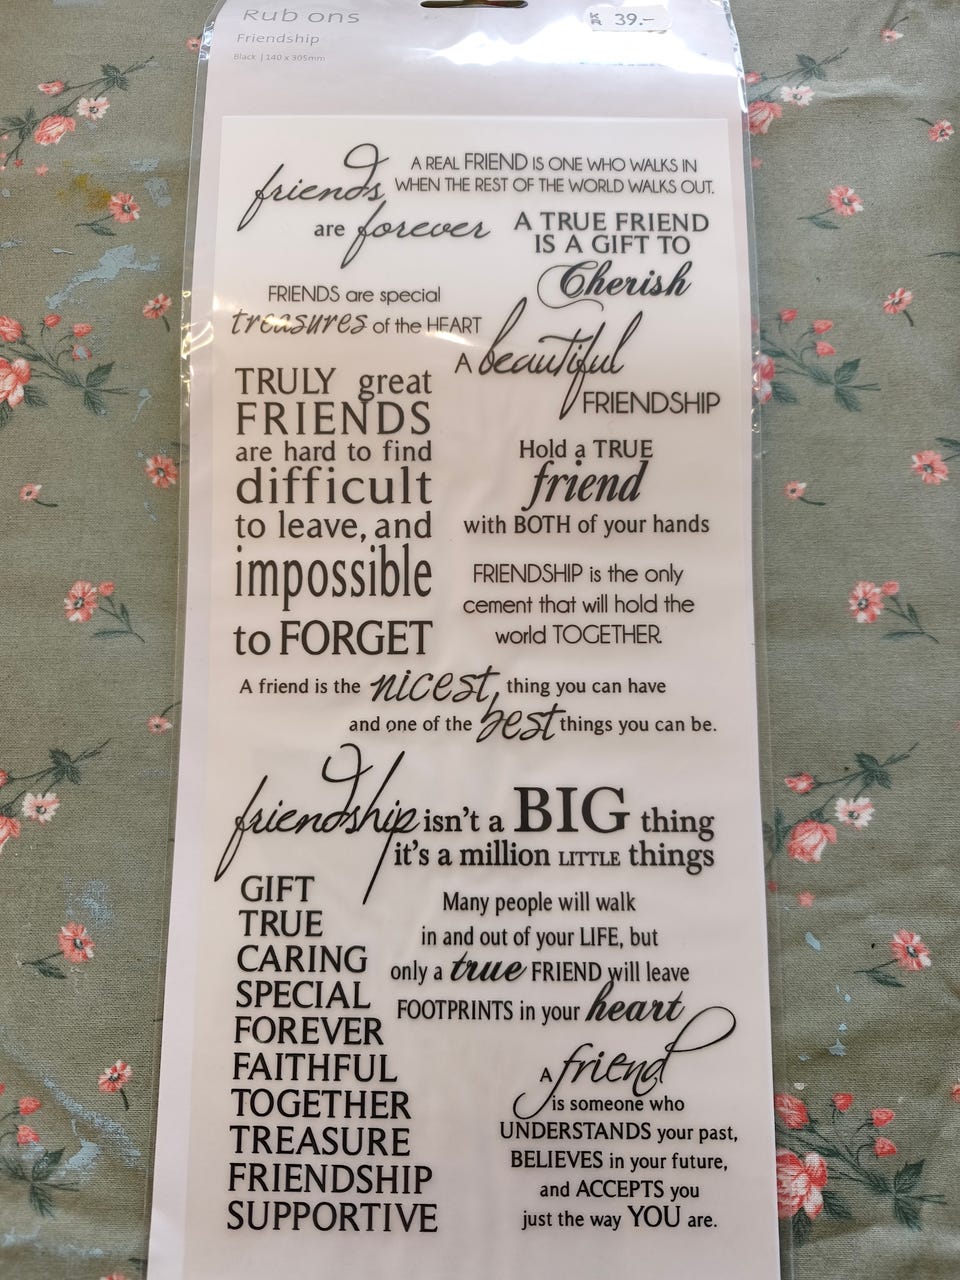 Rub ons
Friendship
Black | 140 x 305mm
KR 39.-
friends
are forever
A REAL FRIEND IS ONE WHO WALKS IN
WHEN THE REST OF THE WORLD WALKS OUT.
A TRUE FRIEND
IS A GIFT TO
Cherish
FRIENDS are special
treasures of the HEART
A beautiful
FRIENDSHIP
TRULY great
FRIENDS
are hard to find
difficult
to leave, and
impossible
to FORGET
Hold a TRUE
friend
with BOTH of your hands
FRIENDSHIP is the only
cement that will hold the
world TOGETHER.
A friend is the nicest thing you can have
and one of the best things you can be.
friendship isn't a BIG thing
it's a million LITTLE things
GIFT
TRUE
CARING
SPECIAL
FOREVER
FAITHFUL
TOGETHER
TREASURE
FRIENDSHIP
SUPPORTIVE
Many people will walk
in and out of your LIFE, but
only a true FRIEND will leave
FOOTPRINTS in your heart
A friend
is someone who
UNDERSTANDS your past,
BELIEVES in your future,
and ACCEPTS you
just the way YOU are.